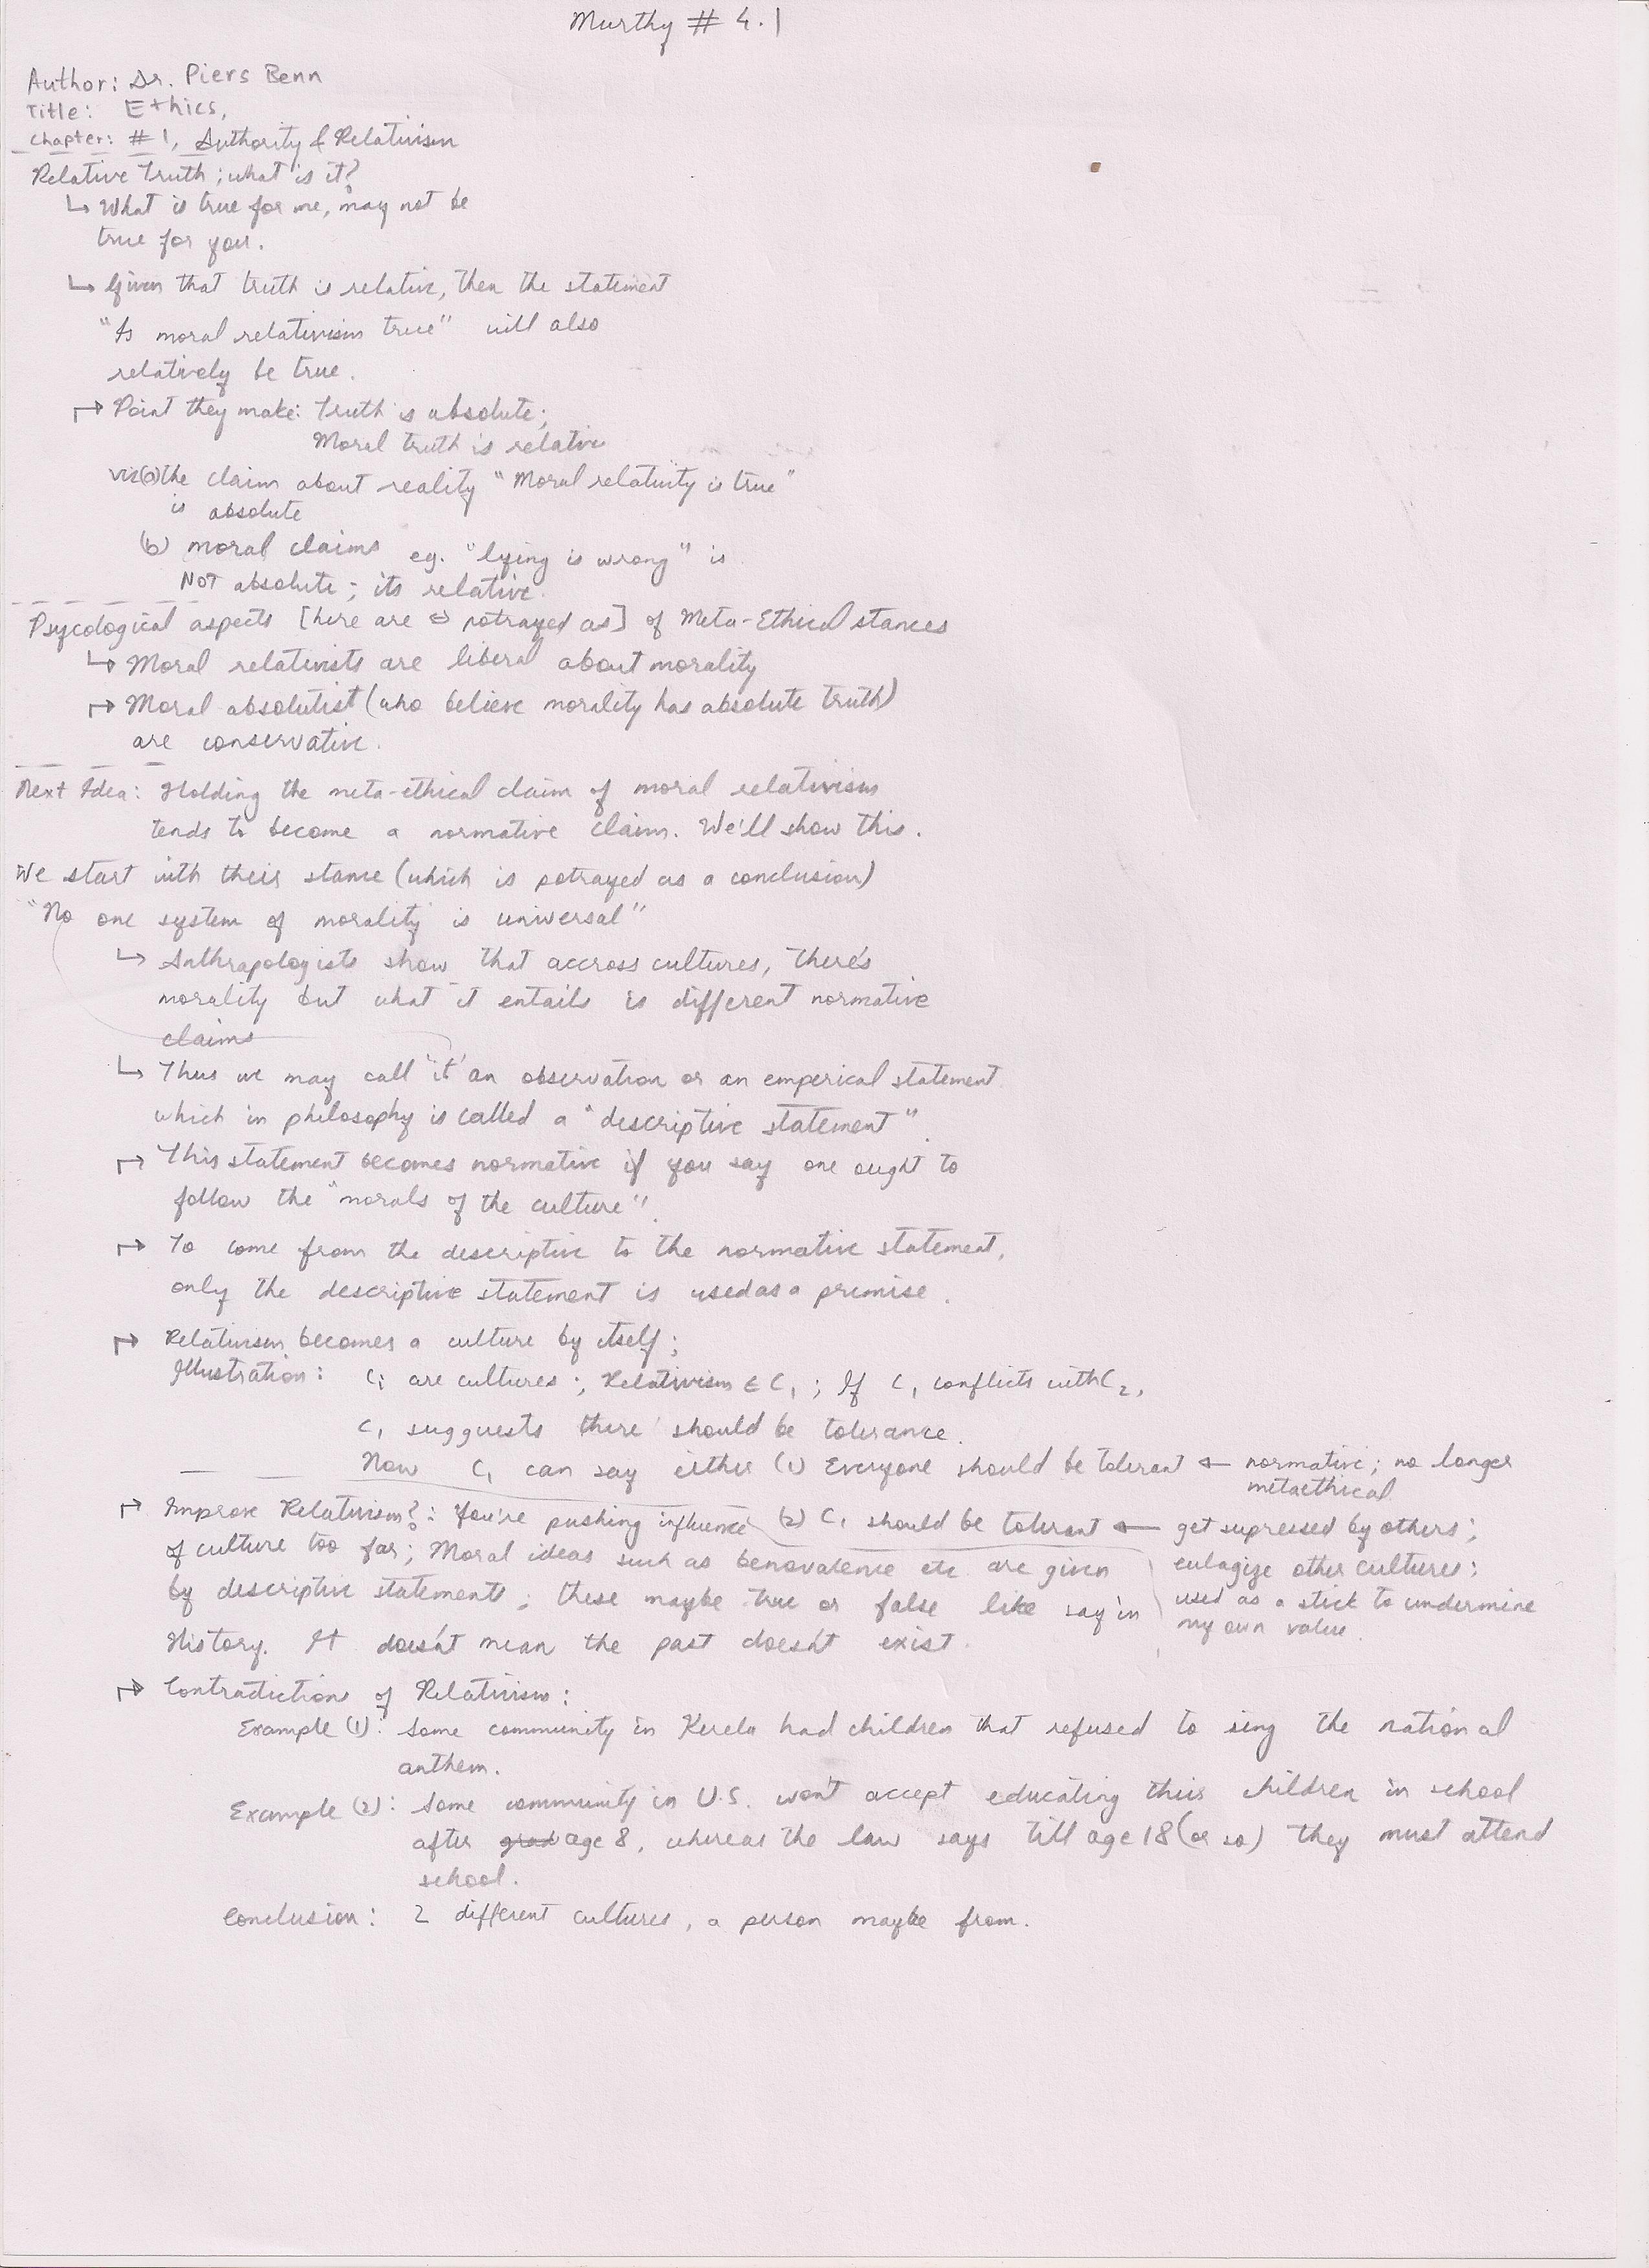 Murthy # 4.1
Author: Dr. Piers Benn
Title: Ethics,
Chapter: #1, Authority & Relativism
Relative Truth; what is it?
↳ What is true for me, may not be
true for you.
↳ Given that truth is relative, then the statement
"Is moral relativism true" will also
relatively be true.
↳ Point they make: Truth is absolute;
Moral truth is relative
viz (a) the claim about reality "Moral relativity is true"
is absolute
(b) moral claims eg. "lying is wrong" is
NOT absolute; its relative.
Psycological aspects [here are ⇔ potrayed as] of Meta-Ethical stances
↳ Moral relativists are liberal about morality
↳ Moral absolutist (who believe morality has absolute truth)
are conservative.
Next Idea: Holding the meta-ethical claim of moral relativism
tends to become a normative claim. We'll show this.
We start with their stance (which is potrayed as a conclusion)
"No one system of morality is universal"
↳ Anthrapologists show that accross cultures, there's
morality but what it entails is different normative
claims
↳ Thus we may call 'it' an observation or an emperical statement
which in philosophy is called a "descriptive statement".
↳ This statement becomes normative if you say one ought to
follow the "morals of the culture".
↳ To come from the descriptive to the normative statement,
only the descriptive statement is used as a premise.
↳ Relativism becomes a culture by itself;
Illustration: Ci are cultures; Relativism ∈ C1; If C1 conflicts with C2,
C1 sugguests there should be tolerance.
Now C1 can say either (1) Everyone should be tolerant ← normative; no longer
metaethical
↳ Improve Relativism?: You're pushing influence (2) C1 should be tolerant ← get supressed by others;
of culture too far; Moral ideas such as benovalence etc are given eulagize other cultures;
by descriptive statements; these maybe true or false like say in used as a stick to undermine
my own value.
History. It doesn't mean the past doesn't exist.
↳ Contradictions of Relativism:
Example (1): Some community in Kerela had children that refused to sing the national
anthem.
Example (2): Some community in U.S. won't accept educating their children in school
after grad age 8, whereas the law says till age 18 (or so) they must attend
school.
Conclusion: 2 different cultures, a person maybe from.